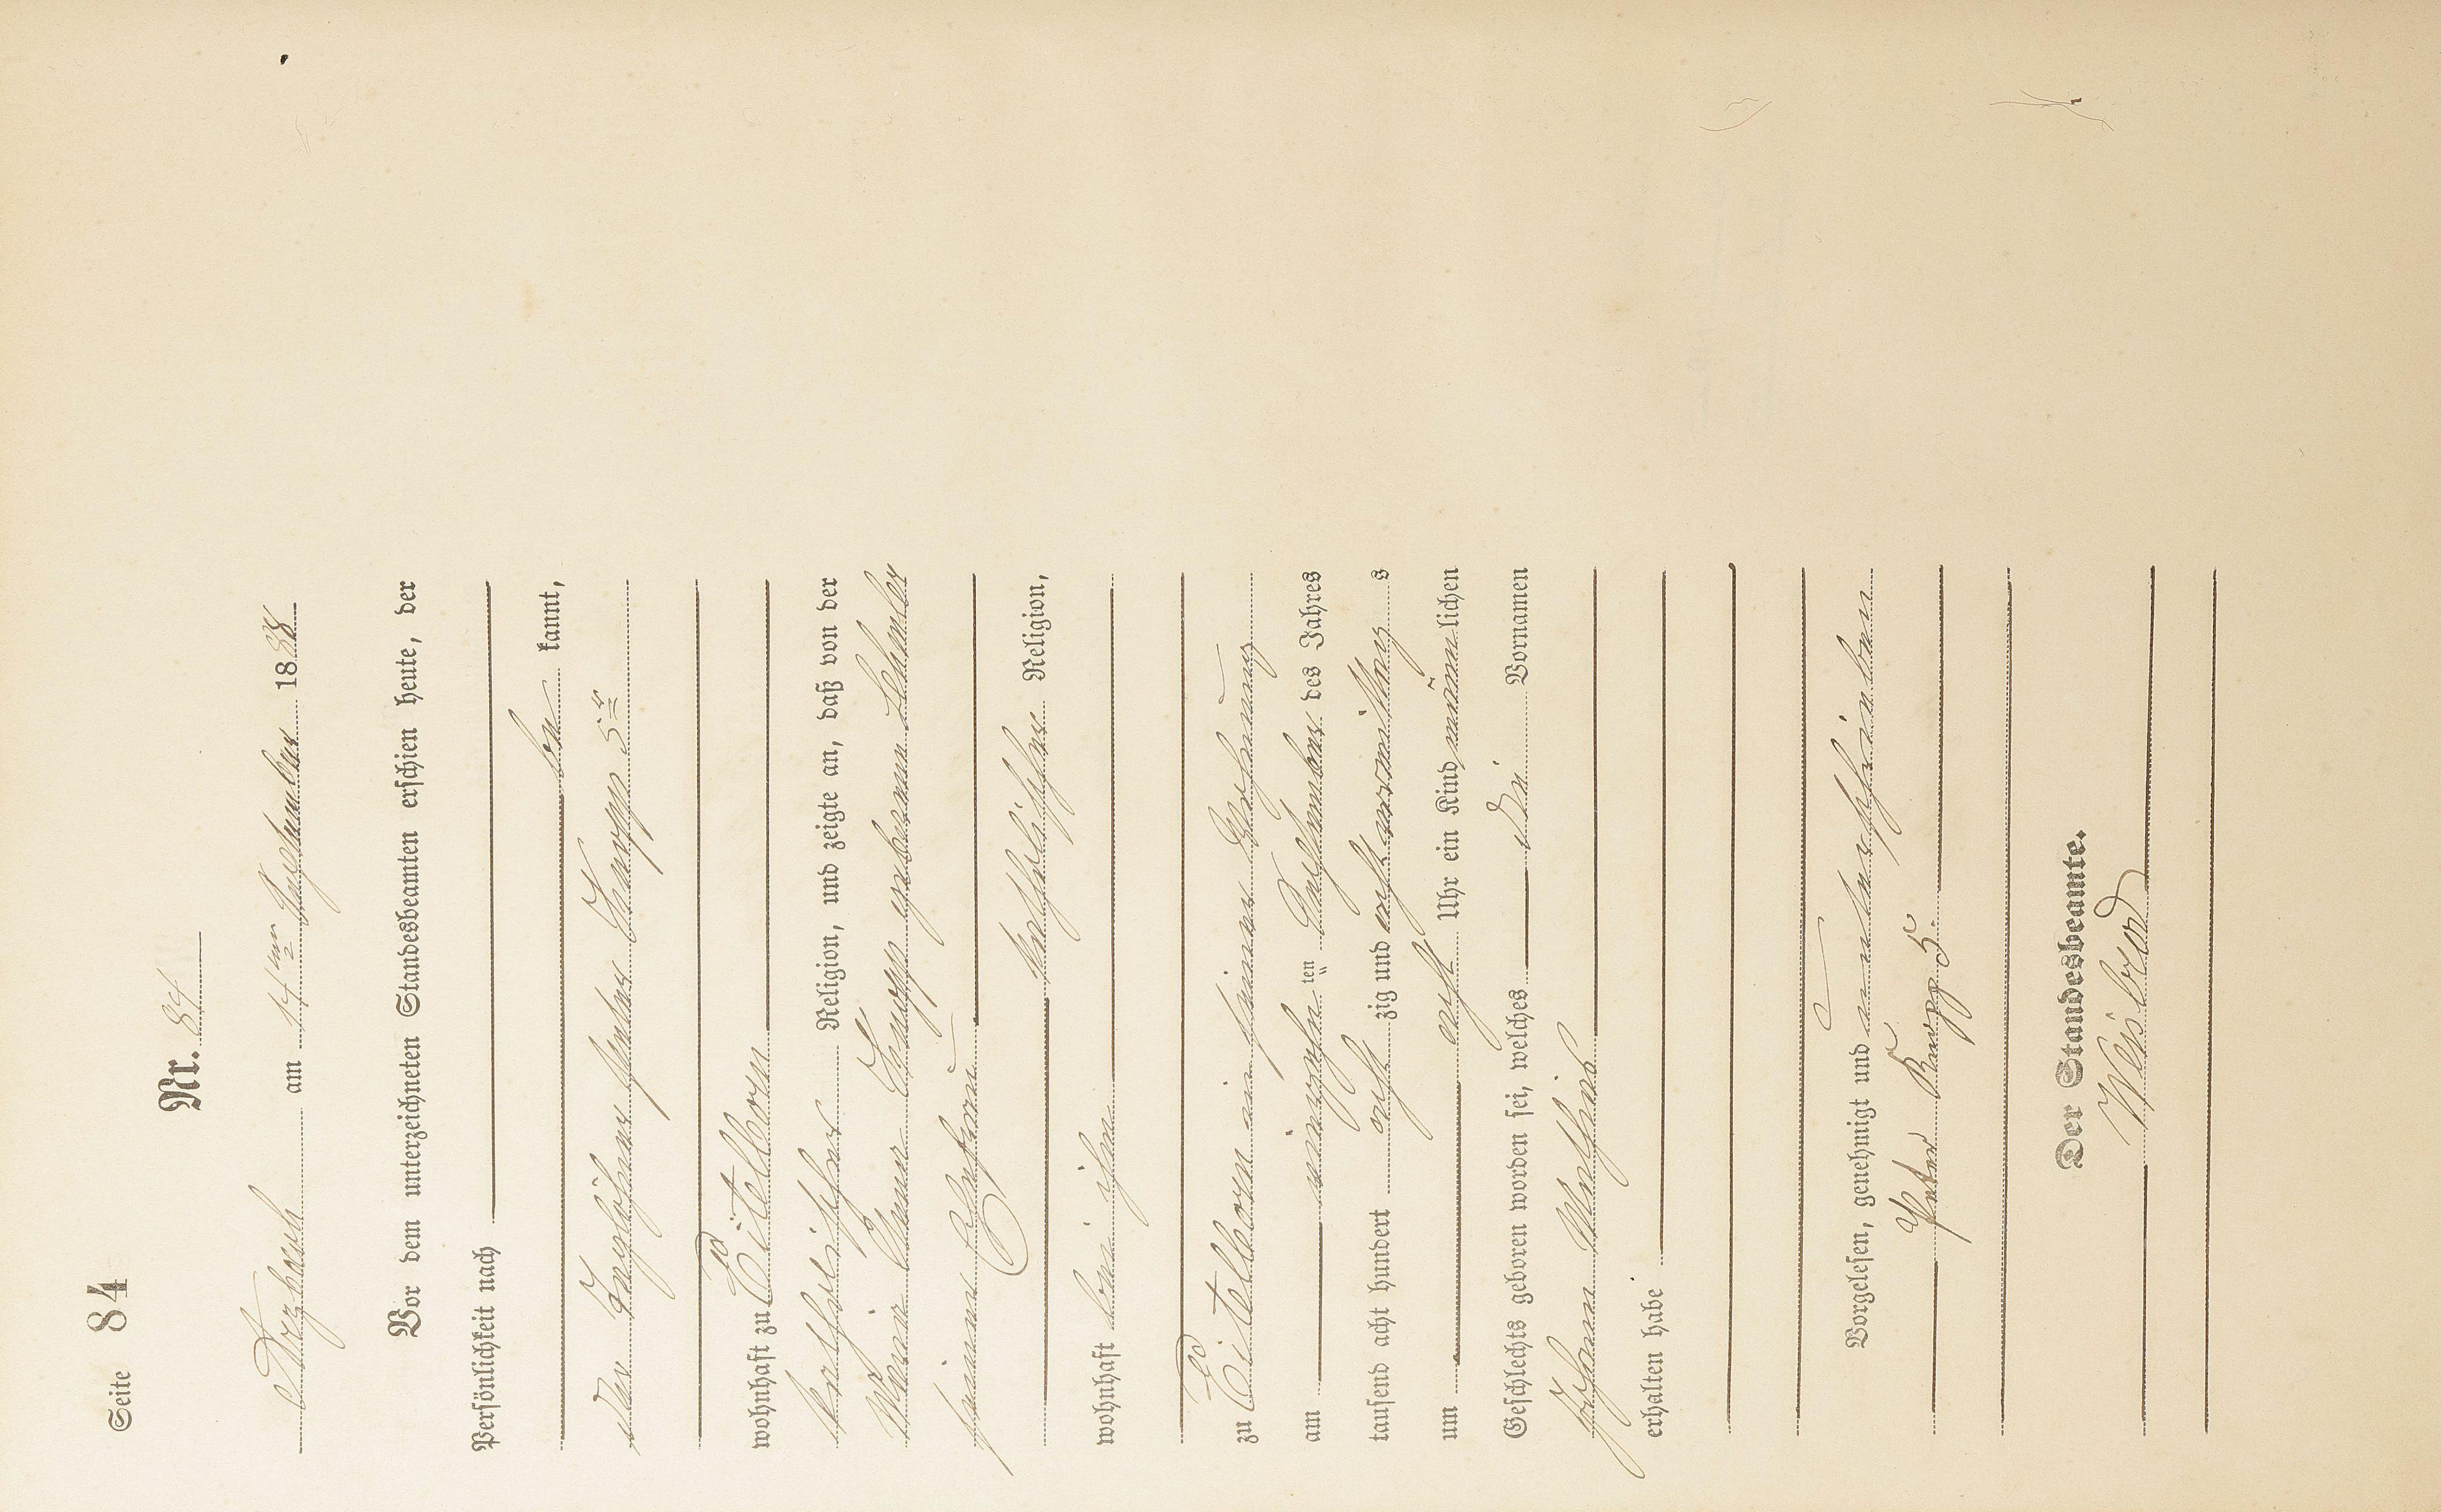 Seite 84
Nr. 84
Arzbach am 14ten September 1888
Vor dem unterzeichneten Standesbeamten erschien heute, der
Persönlichkeit nach
be kannt,
der Taglöhner Peter Knopp 5r
wohnhaft zu Eitelborn
katholischer Religion, und zeigte an, daß von der
Maria Anna Knopp geborenen
seiner Ehefrau
katholischer Religion,
wohnhaft bei ihm
zu Eitelborn in seiner Wohnung
am vierzehnten September des Jahres
tausend acht hundert acht zig und acht vormittags
um acht Uhr ein Kind männlichen
Geschlechts geboren worden sei, welches die Vornamen
Johann Mathias
erhalten habe
Vorgelesen, genehmigt und unterschrieben
Peter Knopp 5.
Der Standesbeamte.
Weisbrod